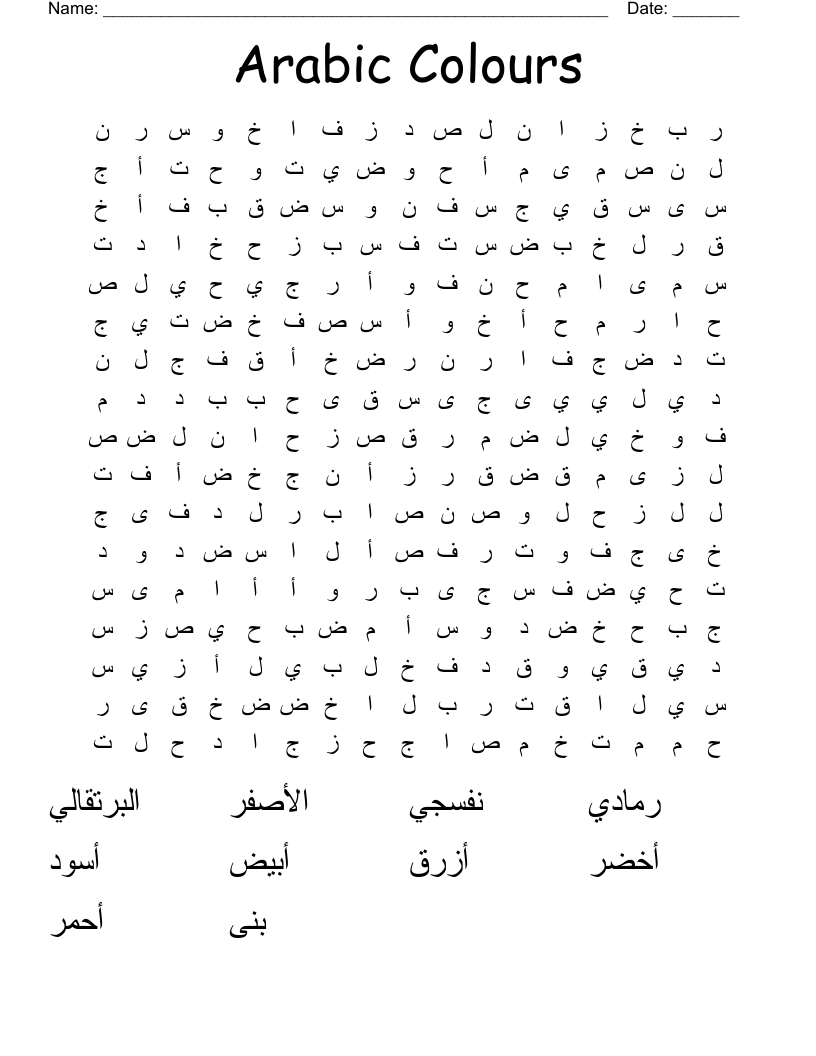 Name: ______________________________________________________ Date: _______
Arabic Colours
ر ب خ ز ا ن ل ص د ز ف ا خ و س ر ن
ل ن ص م ى م أ ح و ض ي ت و ح ت أ ج
س ى س ق ي ج س ف ن و س ض ق ب ف أ خ
ق ر ل خ ب ض س ت ف س ب ز ح خ ا د ت
س م ى ا م ح ن ف و أ ر ج ي ح ي ل ص
ح ا ر م ح أ خ و أ س ص ف خ ض ت ي ج
ت د ض ج ف ا ر ن ر ض خ أ ق ف ج ل ن
د ي ل ي ي ى ج ى س ق ى ح ب ب د د م
ف و خ ي ل ض م ر ق ص ز ح ا ن ل ض ص
ل ز ى م ق ض ق ر ز أ ن ج خ ض أ ف ت
ل ل ز ح ل و ص ن ص ا ب ر ل د ف ى ج
خ ى ج ف و ت ر ف ص أ ل ا س ض د و د
ت ح ي ض ف س ج ى ب ر و أ أ ا م ى س
ج ب ح خ ض د و س أ م ض ب ح ي ص ز س
د ي ق ي و ق د ف خ ل ب ي ل أ ز ي س
س ي ل ا ق ت ر ب ل ا خ ض ض خ ق ى ر
ح م م ت خ م ص ا ج ح ز ج ا د ح ل ت
رمادي نفسجي الأصفر البرتقالي
أخضر أزرق أبيض أسود
بنى أحمر